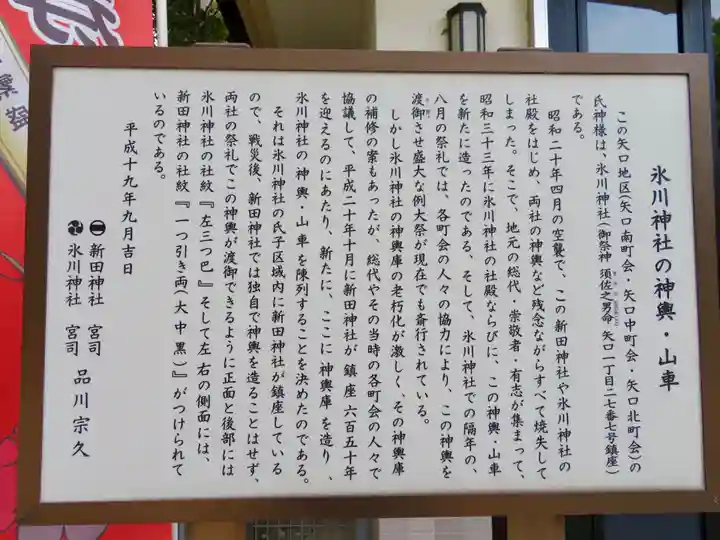 氷川神社の神輿・山車
この矢口地区(矢口南町会・矢口中町会・矢口北町会)の
氏神様は、氷川神社(御祭神 須佐之男命 矢口一丁目二七番七号鎮座)
である。
昭和二十年四月の空襲で、この新田神社や氷川神社の
社殿をはじめ、両社の神輿など残念ながらすべて焼失して
しまった。そこで、地元の総代・崇敬者・有志が集まって、
昭和三十三年に氷川神社の社殿ならびに、この神輿・山車
を新たに造ったのである。そして、氷川神社での隔年の、
八月の祭礼では、各町会の人々の協力により、この神輿を
渡御させ盛大な例大祭が現在でも斎行されている。
しかし氷川神社の神輿庫の老朽化が激しく、その神輿庫
の補修の案もあったが、総代やその当時の各町会の人々で
協議して、平成二十年十月に新田神社が鎮座六百五十年
を迎えるのにあたり、新たに、ここに神輿庫を造り、
氷川神社の神輿・山車を陳列することを決めたのである。
それは氷川神社の氏子区域内に新田神社が鎮座している
ので、戦災後、新田神社では独自で神輿を造ることはせず、
両社の祭礼でこの神輿が渡御できるように正面と後部には
氷川神社の社紋『左三つ巴』そして左右の側面には、
新田神社の社紋『一つ引き両(大中黒)』がつけられて
いるのである。
平成十九年九月吉日
新田神社 宮司 品川宗久
氷川神社 宮司